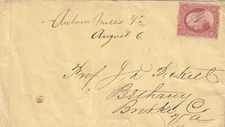 Auburn Mills Va
August 6
Prof. J. D. Pickett
Bethany
Brooke Co
Va